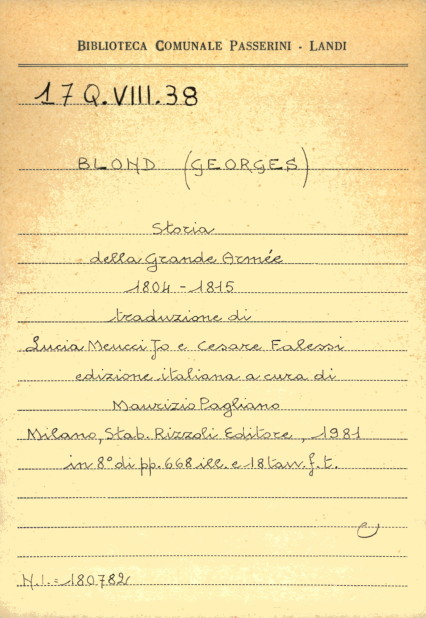 BIBLIOTECA COMUNALE PASSERINI - LANDI
17 Q.VIII.38
BLOND (GEORGES)
Storia
della Grande Armée
1804 - 1815
traduzione di
Lucia Meucci Jo e Cesare Falessi
edizione italiana a cura di
Maurizio Pagliano
Milano, Stab. Rizzoli Editore, 1981
in 8° di pp. 668 ill. e 18 tav. f. t.
N.I. = 180782